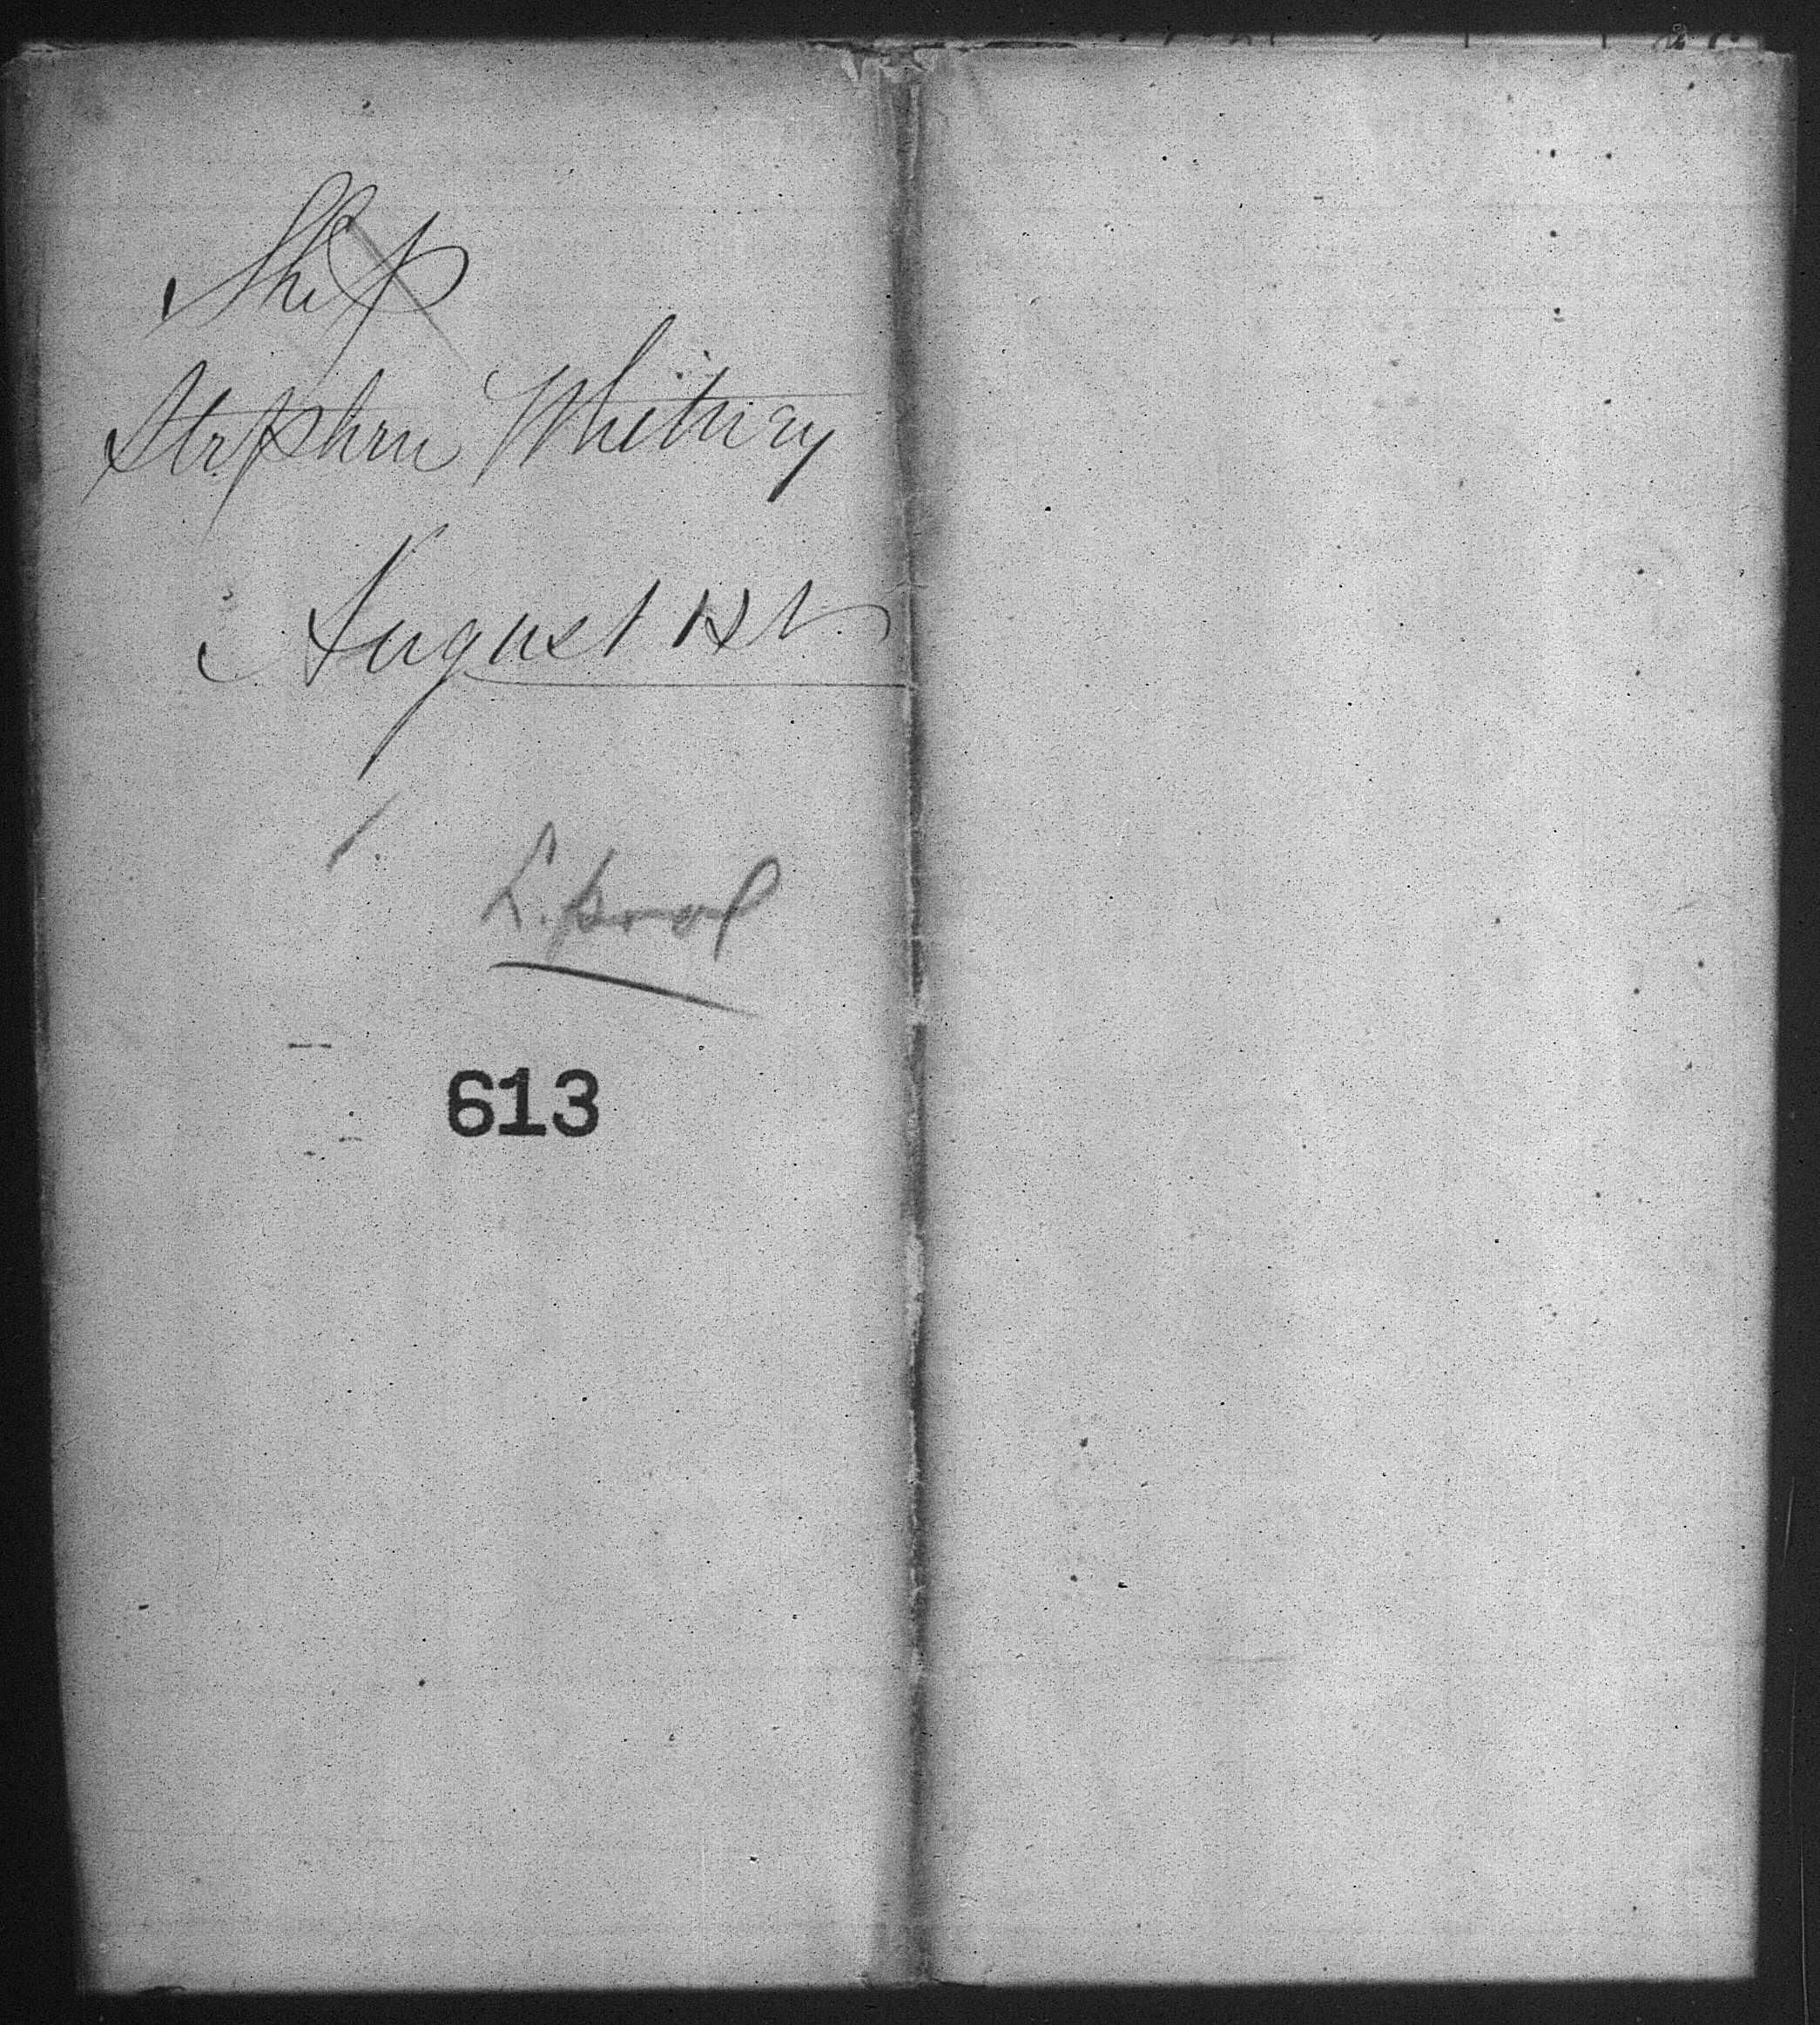 Ship
Stephen Whitney
August 1st
L.pool
613